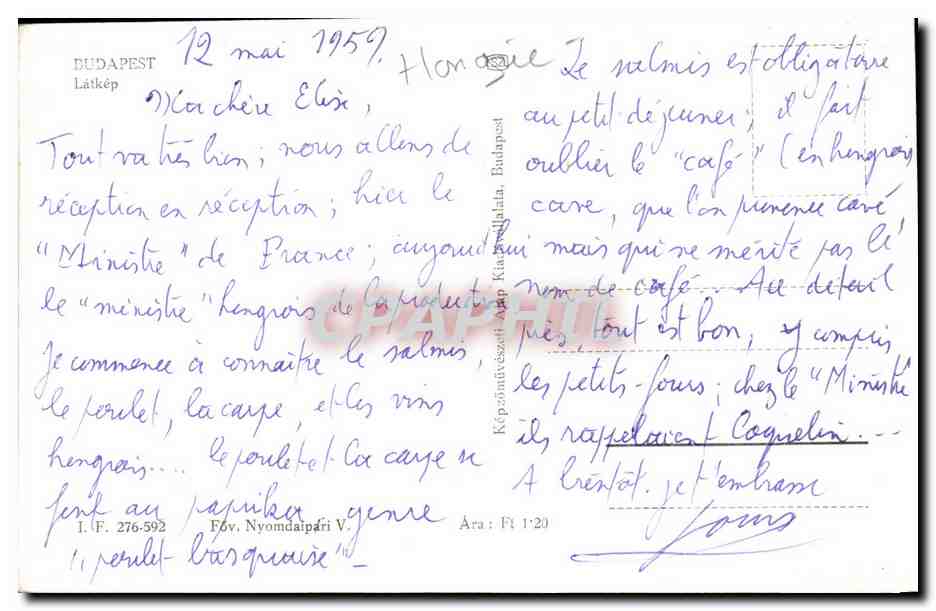 BUDAPEST
Látkép
12 mai 1959.
Hongrie
Ma chère Elise,
Tout va très bien; nous allons de
réception en réception; hier le
"Ministre" de France; aujourd'hui
le "ministre" hongrois de la production
Je commence à connaître le salmis,
le poulet, la carpe, et les vins
hongrois.... le poulet et la carpe se
font au paprika, genre
"poulet basquaise"-
I. F. 276-592 Föv. Nyomdaipári V. Ára: Ft 1·20
Képzőművészeti Alap Kiadóvállalata, Budapest
Le salmis est obligatoire
au petit déjeuner; il fait
oublier le "café" (en hongrois
cave, que l'on prononce cavé,
mais qui ne mérite pas le
nom de café.. Au détail
près, tout est bon, y compris
les petits-fours; chez le "Ministre"
ils rappelaient Coquelin...
A bientôt. je t'embrasse
CPAPHIL